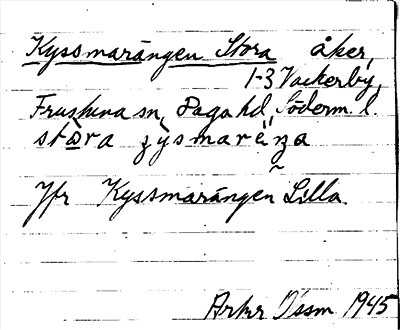 Kyssmarängen Stora åker,
1-3 Vackerby,
Frustuna sn, Daga hd, Söderm. l.
stòra
Jfr Kyssmarängen Lilla.
1945